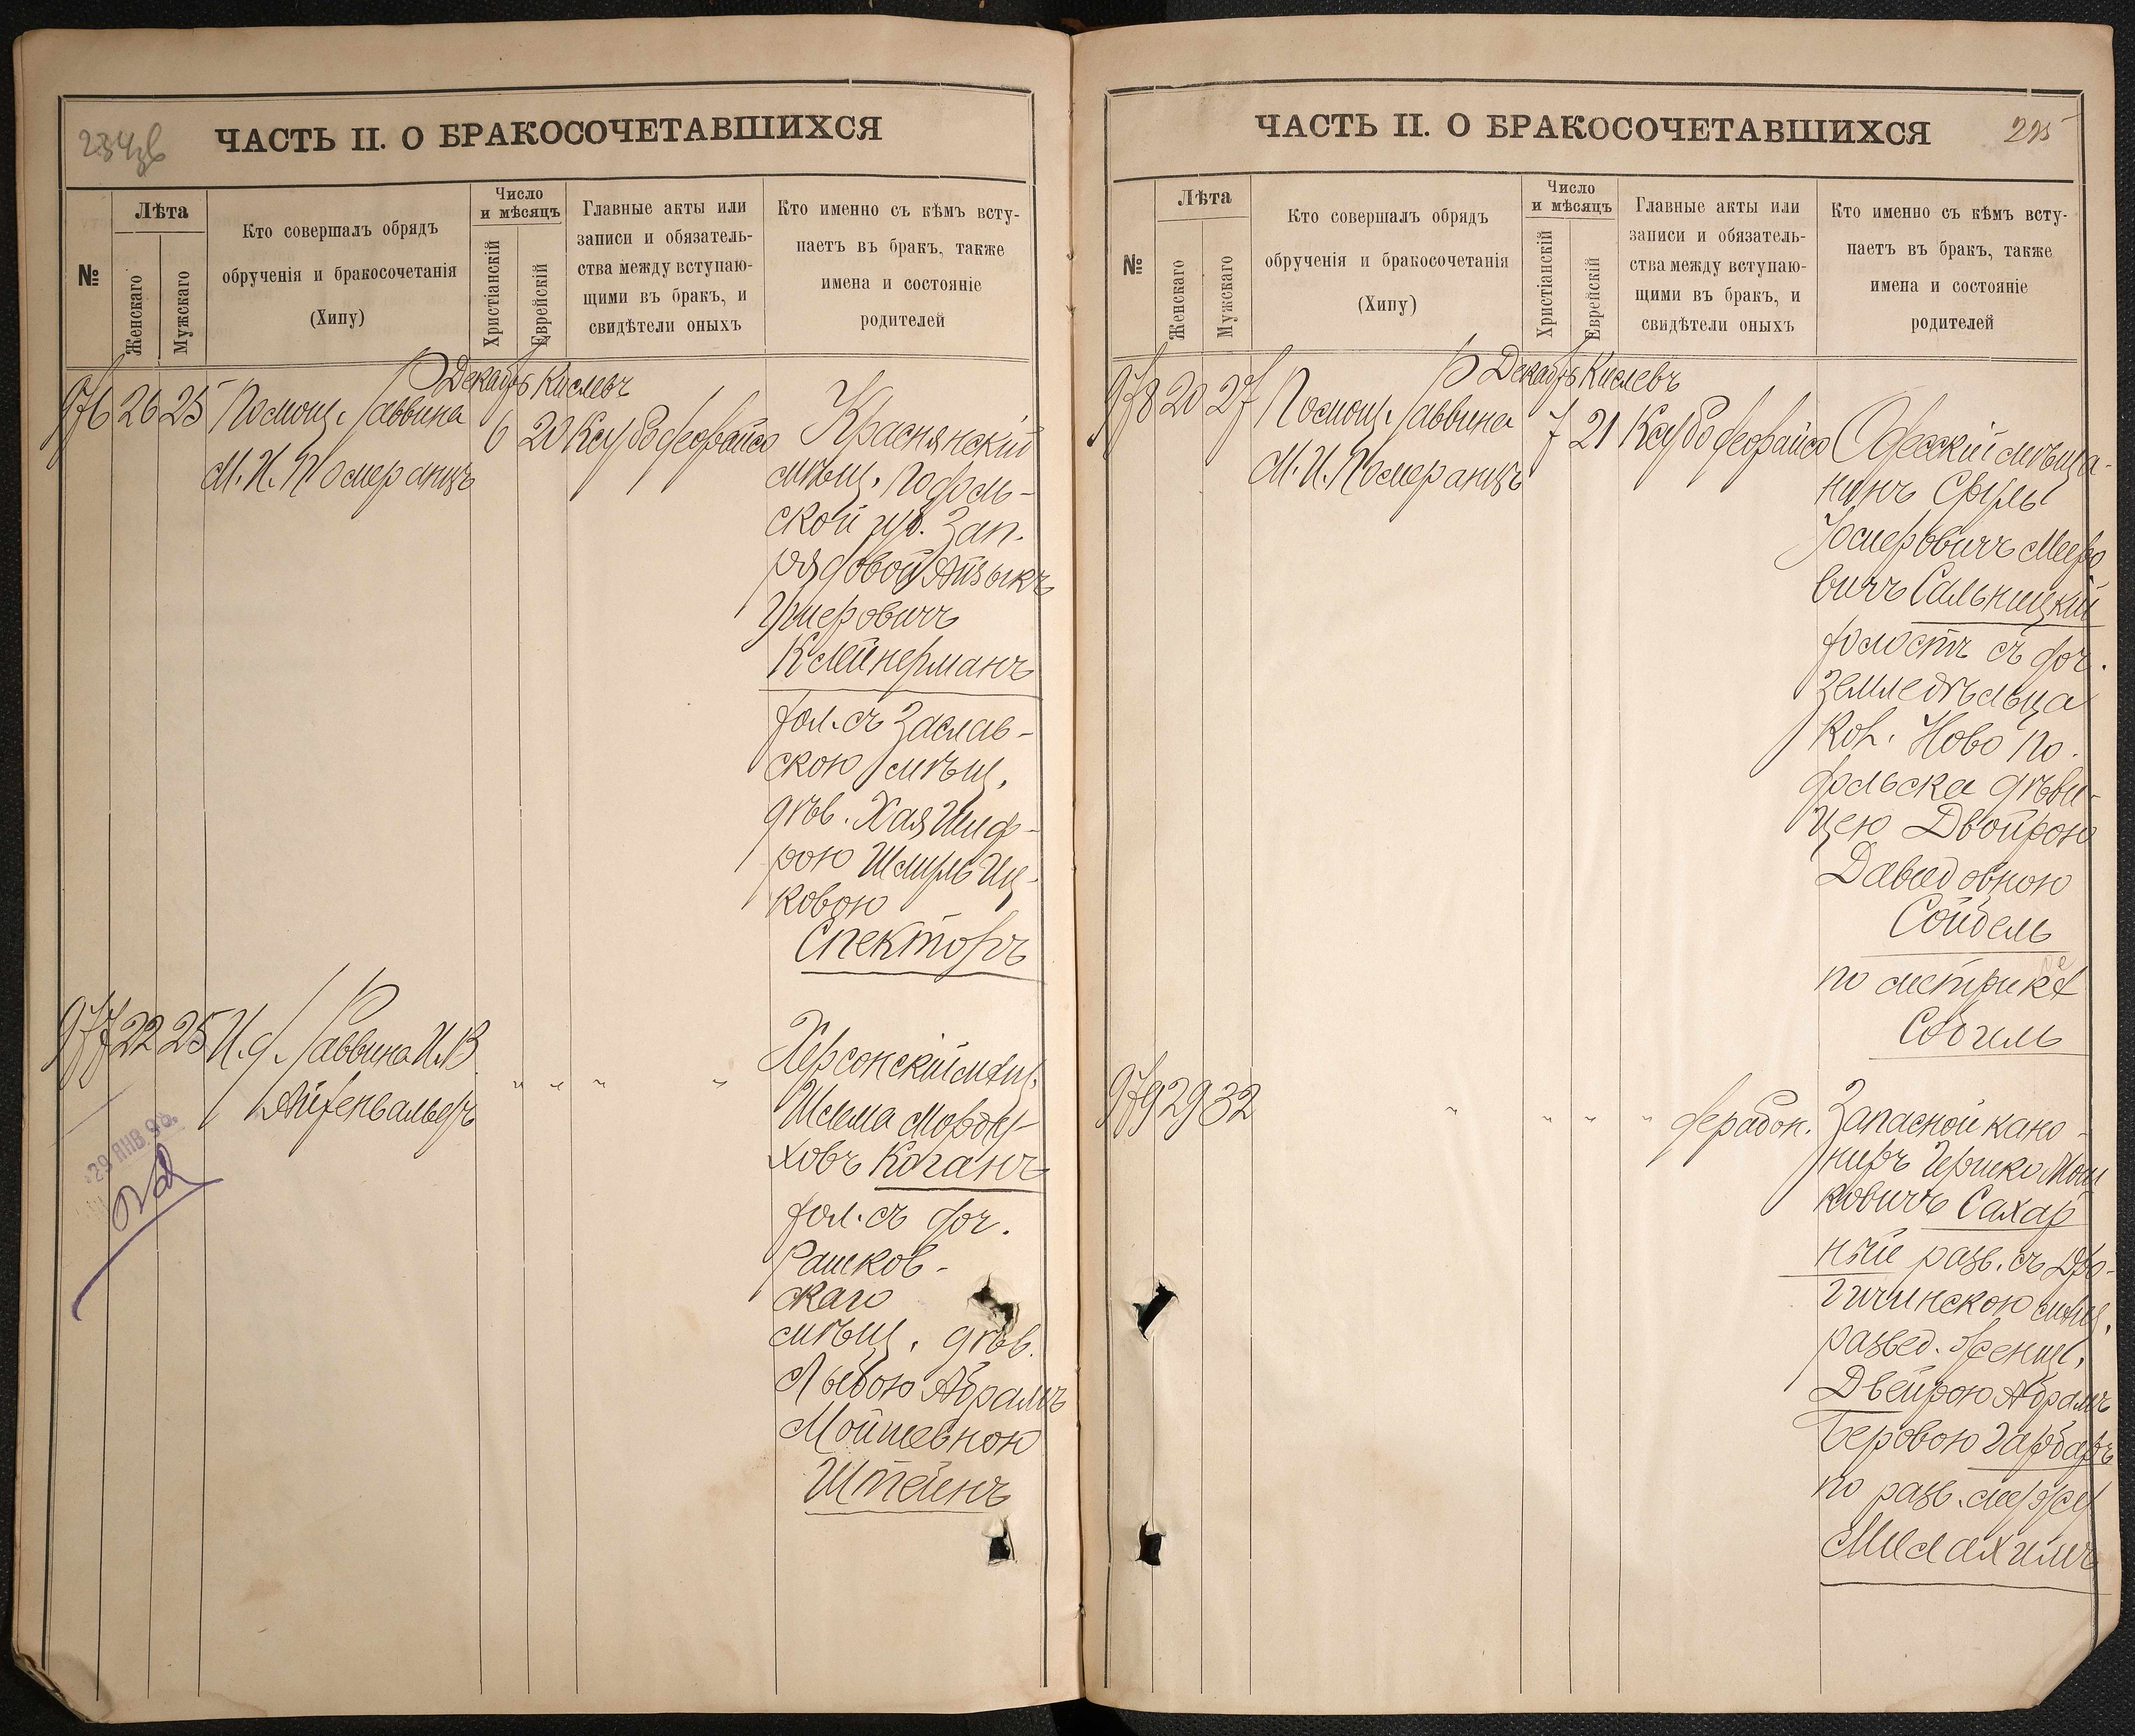 234об
ЧАСТЬ II. О БРАКОСОЧЕТАВШИХСЯ
№
Лѣта
Женскаго
Мужскаго
Кто совершалъ обрядъ
обрученія и бракосочетанія
(Хипу)
Число
и мѣсяцъ
Христіанскій
Еврейскій
Главные акты или
записи и обязатель-
ства между вступаю-
щими въ бракъ, и
свидѣтели оныхъ
Кто именно съ кѣмъ всту-
паетъ въ бракъ, также
имена и состояніе
родителей
Декабрь Кислевъ
976 26 25 Помощ. Раввина 6 20
М. И. Померанцъ
Краснянскій
мѣщ. Подоль-
ской губ. Зап.
рядовой Айзыкъ
Ушеровичъ
Клейнерманъ
хол. съ Заслав-
скою мѣщ.
дѣв. Хая Шиф-
рою Шмуль Иц-
ковою
Спекторъ
977 22 25 И. д. Раввина И. В.
Айхенвальдъ
" " " "
29 ЯНВ 98.
Херсонскій мѣщ.
Шлема Морду-
ховъ Коганъ
хол. съ доч.
Рашков-
скаго
мѣщ. дѣв.
Абрамъ
Мойшевною
Штейнъ
ЧАСТЬ II. О БРАКОСОЧЕТАВШИХСЯ
235
№
Лѣта
Женскаго
Мужскаго
Кто совершалъ обрядъ
обрученія и бракосочетанія
(Хипу)
Число
и мѣсяцъ
Христіанскій
Еврейскій
Главные акты или
записи и обязатель-
ства между вступаю-
щими въ бракъ, и
свидѣтели оныхъ
Кто именно съ кѣмъ всту-
паетъ въ бракъ, также
имена и состояніе
родителей
Декабрь Кислевъ
978 20 27 Помощ. Раввина 7 21
М. И. Померанцъ
Одесскій мѣща-
нинъ Сруль
Мееро
вичъ Сальницкій
холостъ съ доч.
земледѣльца
кол. Ново По-
дольска дѣви-
цею Двойрою
Давидовною
Сойбель
по метрике
979 29 32
" " " "
Запасной кано-
ниръ Гершко Мош
ковичъ Сахар
ный разв. съ Дро-
гичинскою мѣщ.
развед. женщ.
Двейрою Абрамъ
Беровою Гарбаръ
по разв.